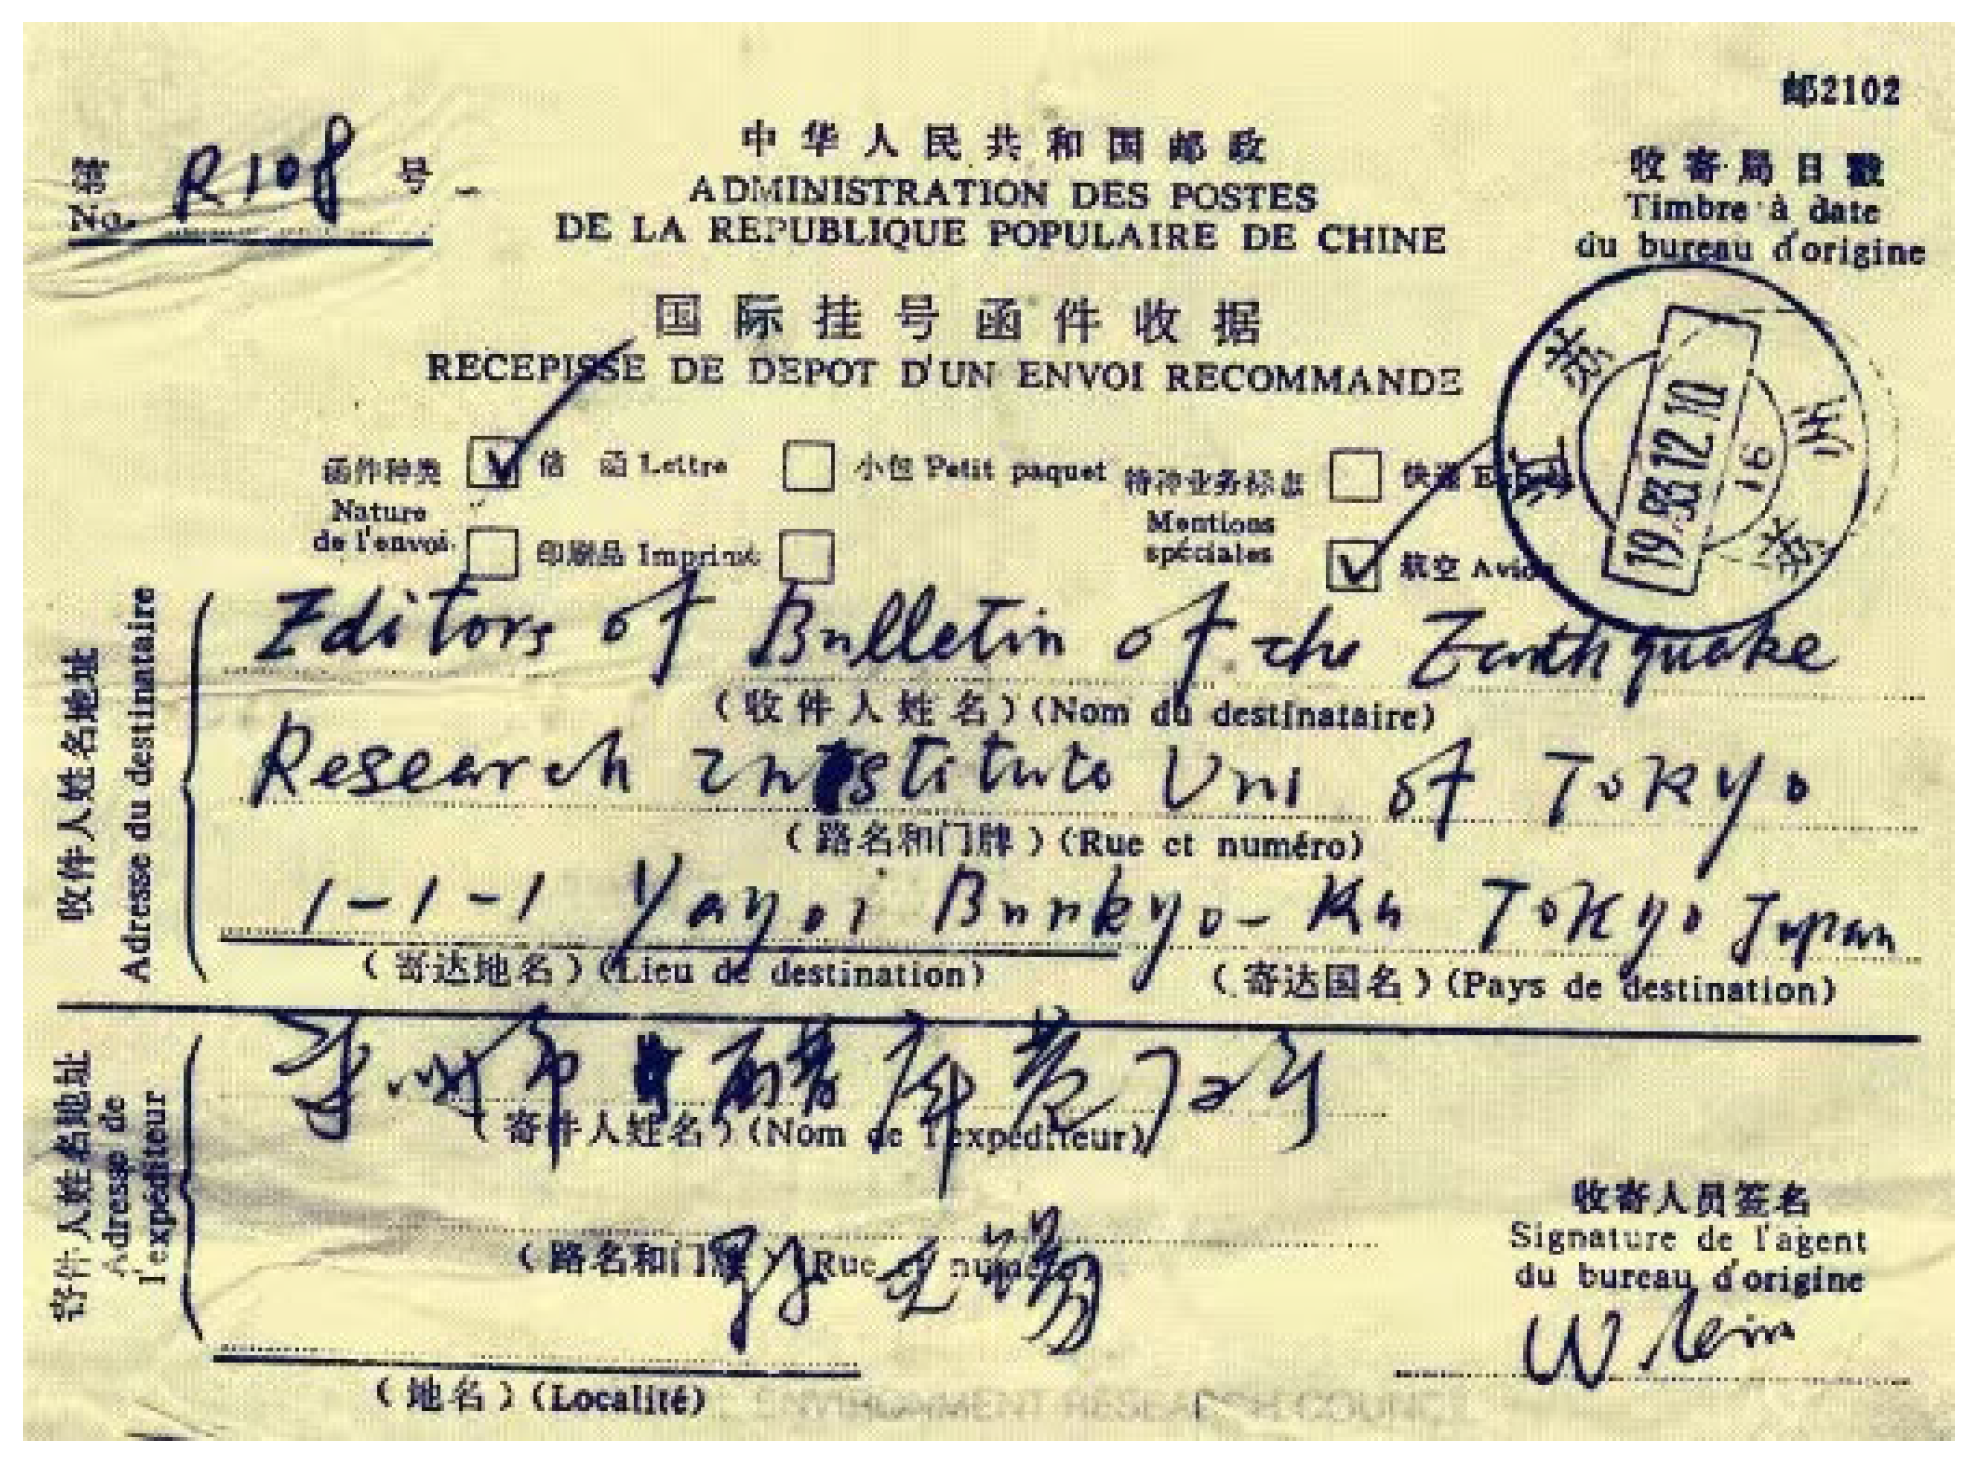 邮2102
第 R108 号
No.
中华人民共和国邮政
ADMINISTRATION DES POSTES
DE LA REPUBLIQUE POPULAIRE DE CHINE
收寄局日戳
Timbre à date
du bureau d'origine
国际挂号函件收据
RECEPISSE DE DEPOT D'UN ENVOI RECOMMANDE
江苏 苏州
19 93.12.10
16
函件种类
Nature
de l'envoi
信 函 Lettre
小包 Petit paquet
印刷品 Imprimé
特种业务标志
Mentions
spéciales
快递
航空 Avion
收件人姓名地址
Adresse du destinataire
Editors of Bulletin of the Earthquake
(收件人姓名) (Nom du destinataire)
Research Institute Uni of Tokyo
(路名和门牌) (Rue et numéro)
1-1-1 Yayoi Bunkyo-Ku Tokyo Japan
(寄达地名) (Lieu de destination)
(寄达国名) (Pays de destination)
寄件人姓名地址
Adresse de
l'expéditeur
(寄件人姓名) (Nom de l'expéditeur)
(路名和门牌) (Rue et numéro)
(地名) (Localité)
收寄人员签名
Signature de l'agent
du bureau d'origine
ENVIRONMENT RESEARCH COUNCIL